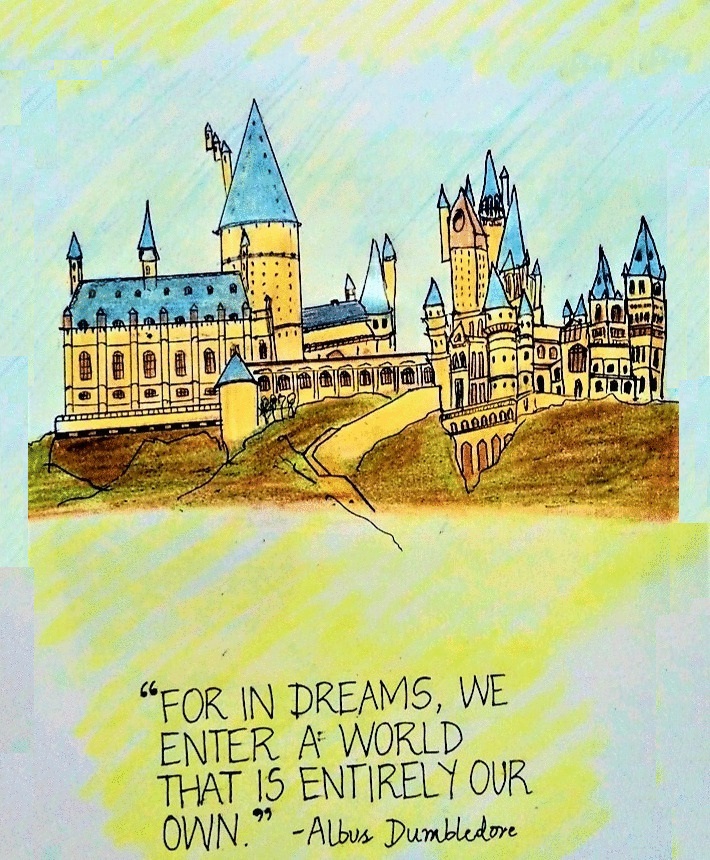 “FOR IN DREAMS, WE
ENTER A WORLD
THAT IS ENTIRELY OUR
OWN.” -Albus Dumbledore